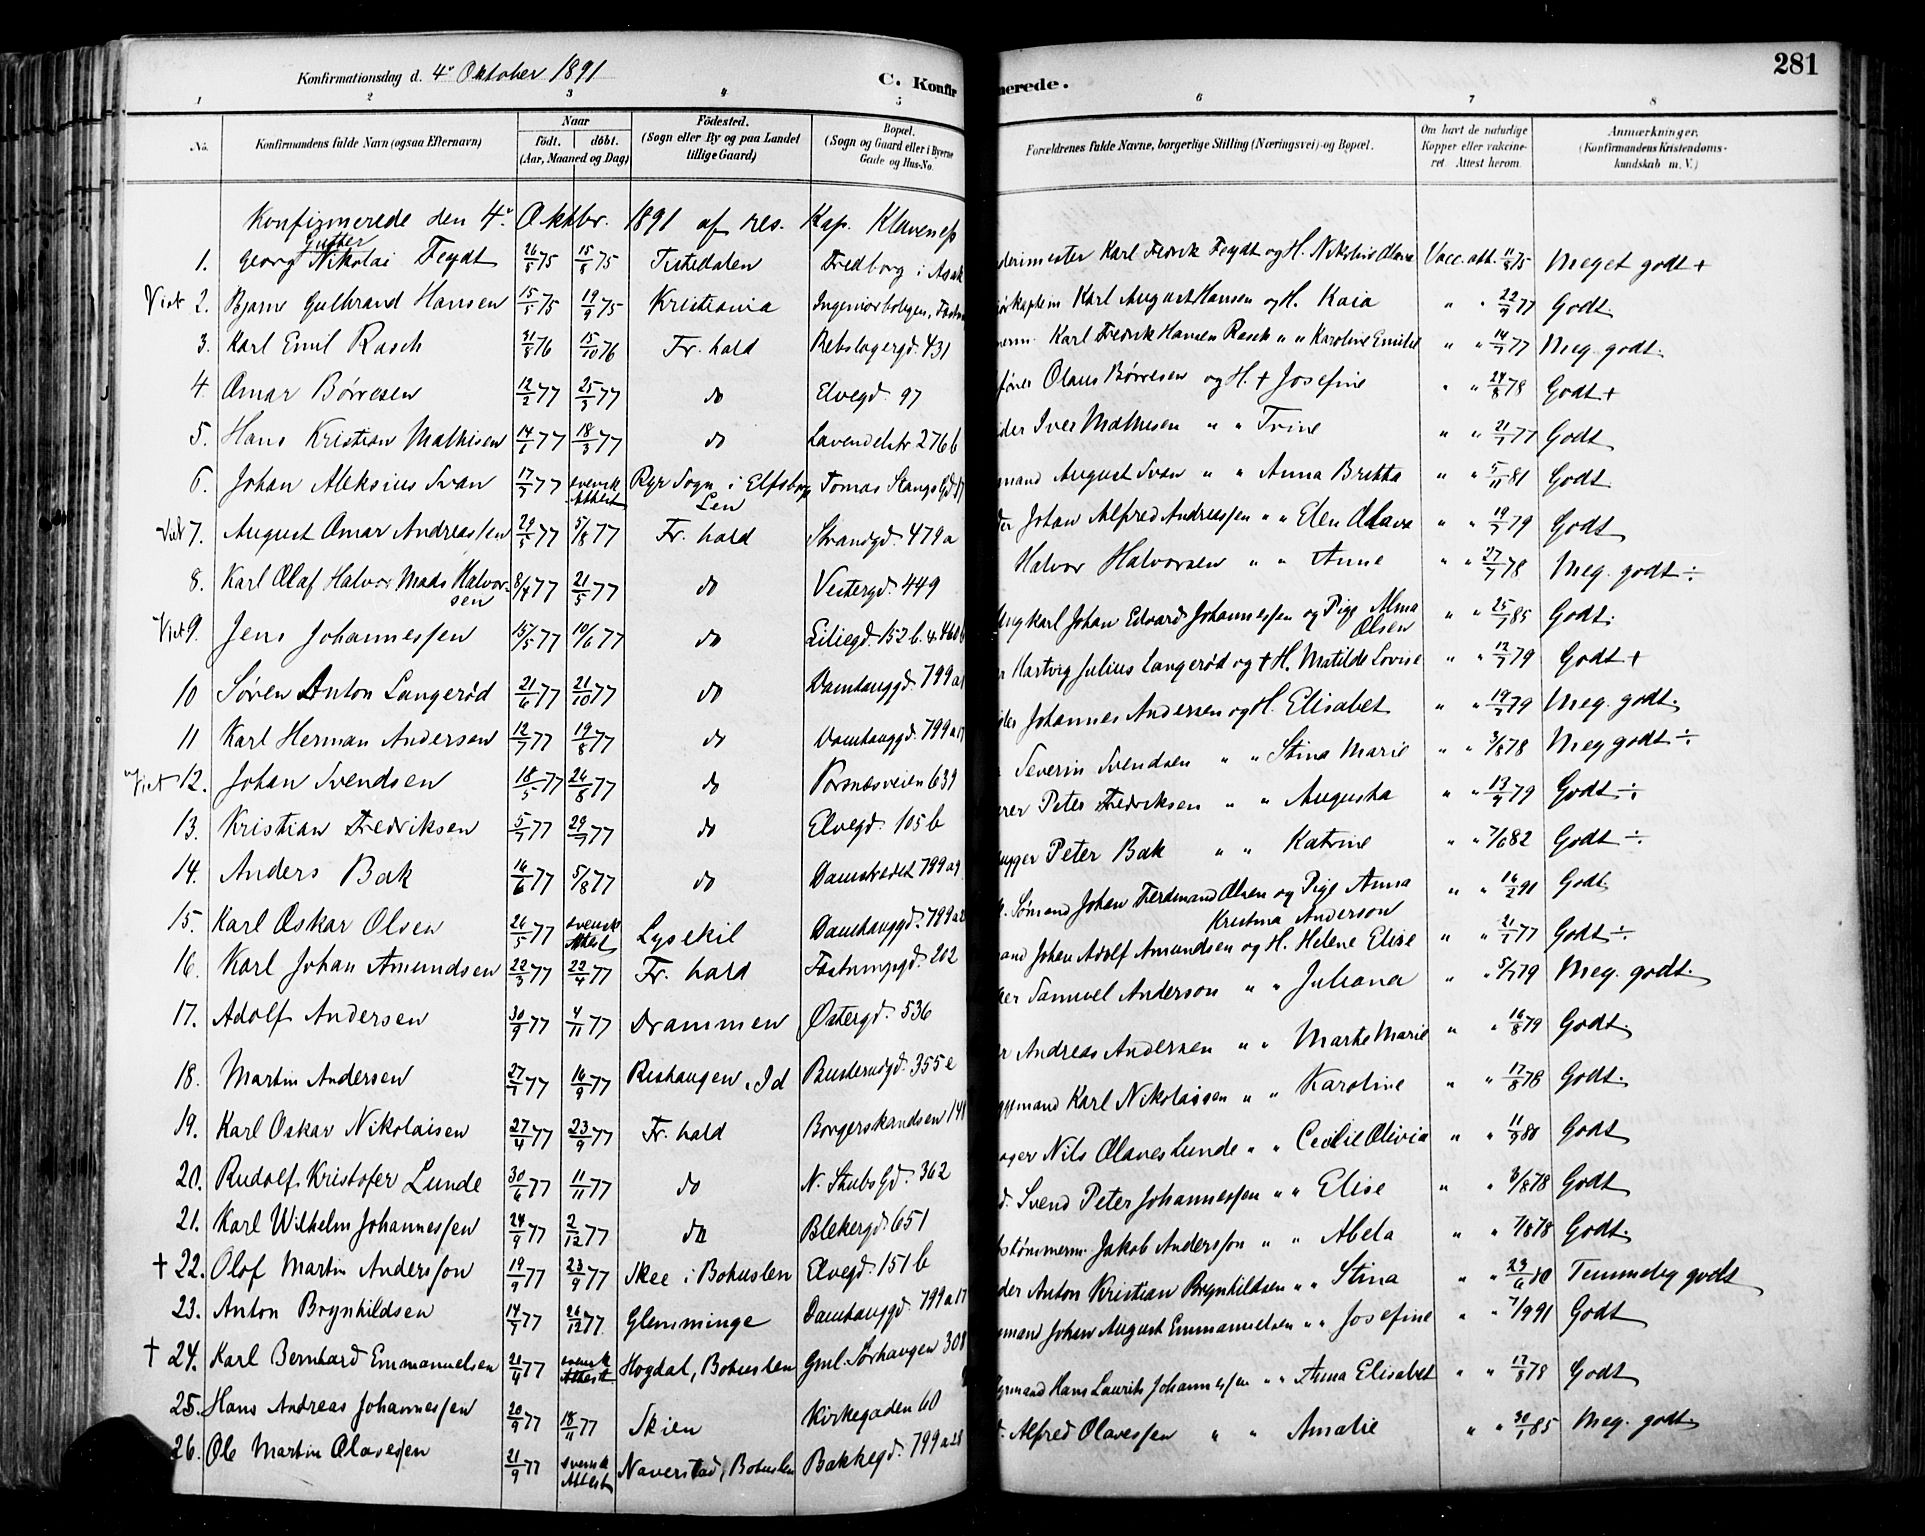 Konfirmationsdag d. 4de Oktober 1891
C. Konfirmerede.
281
1 2 3 4 5 6 7 8
No. Konfirmandens fulde Navn (ogsaa Efternavn) Naar født. døbt. (Aar, Maaned og Dag) Fødested. (Sogn eller By og paa Landet tillige Gaard) Bopæl. (Sogn og Gaard eller i Byerne Gade og Hus-No. Forældrenes fulde Navne, borgerlige Stilling (Næringsvei) og Bopæl. Om havt de naturlige Kopper eller vakcineret Attest herom. Anmærkninger. (Konfirmandens Kristendomskundskab m. V.)
Konfirmerede den 4de Oktbr. 1891 af res. Kap. Klaveness
Gutter
1. Georg Nikolai Feydt 26/5 75 15/8 75 Tistedalen Fredborg i Asak Karl Fredrik Feydt og H. Nikoline Olava Vacc. att. 11/8 75 Meget godt +
2. Bjarne Gulbrand Hansen 15/5 75 19/9 75 Kristiania Ingeniørboligen, Karl August Hansen og H. Kaia " " 22/9 77 Godt
3. Karl Emil Rasch 31/8 76 15/10 76 Fr. hald Rebslagergd. 431 Karl Fredrik Hansen Rasch " " Karoline Emilie " " 14/7 77 Meg. godt.
4. Omar Børresen 12/2 77 25/3 77 do Elvegd. 97 Olaus Børresen og H. + Josefine " " 24/8 78 Godt +
5. Hans Kristian Mathisen 14/1 77 18/3 77 do Lavendelstr. 276 b Iver Mathisen " " Trine " " 21/7 77 Godt
6. Johan Aleksius Svan 17/7 77 svensk Attest Ryr Sogn i Elfsborg Len Tomas Stangs Gd. August Svan " " Anna Britta " " 5/11 81 Godt
7. August Omar Andreassen 29/5 77 5/8 77 Fr. hald Strandgd. 479 a Johan Alfred Andreassen " " Elen Olava " " 19/7 79 Godt
8. Karl Olaf Halvor Mads Halvorsen 8/4 77 21/5 77 do Vestergd. 449 Halvor Halvorsen " " Anne " " 27/7 78 Meg. godt ÷
9. Jens Johannessen 15/5 77 10/6 77 do Liliegd. 152 b. Ungkarl Johan Edvard Johannessen og Pige Alma Olsen " " 25/7 85 Godt.
10 Søren Anton Langerød 21/6 77 21/10 77 do Damhauggd. 799 a Hartvig Julius Langerød og + H. Matilde Lovise " " 12/7 79 Godt +
11 Karl Herman Andersen 12/7 77 19/8 77 do Damhauggd. 799 a Johannes Andersen og H. Elisabet " " 19/7 79 Meg. godt.
12. Johan Svendsen 18/5 77 26/8 77 do Porsnæsveien 639 Severin Svendsen " " Stina Marie " " 3/8 78 Meg godt ÷
13. Kristian Fredriksen 5/7 77 29/7 77 do Elvegd. 105 b Peter Fredriksen " " Augusta " " 19/7 79 Godt ÷
14. Anders Bak 16/6 77 5/8 77 do Damstrædet 799 a Peter Bak " " Katrine " " 7/6 82 Godt ÷
15. Karl Oskar Olsen 26/5 77 svensk Attest Lysekil Damhauggd. 799 a Sømand Johan Ferdinand Olsen og Pige Anna Kristina Anderson " " 16/2 91 Godt
16. Karl Johan Amundsen 22/3 77 22/4 77 Fr. hald Fæstningsgd. 202 Johan Adolf Amundsen og H. Helene Elise " " 21/7 77 Godt ÷
17. Adolf Andersen 30/9 77 4/11 77 Drammen Østergd. 536 Samuel Anderson " " Juliana " " 5/7 79 Meg. godt.
18. Martin Andersen 27/7 77 16/9 77 Rishaugen, Id Buslerudgd. 355 e Andreas Andersen " " Marte Marie " " 16/8 79 Godt.
19. Karl Oskar Nikolaisen 27/4 77 23/9 77 Fr. hald Borgerskandsen 141 Karl Nikolaisen " " Karoline " " 17/8 78 Godt.
20. Rudolf Kristofer Lunde 30/6 77 11/11 77 do N. Stubs Gd. 362 Nils Olaves Lunde " " Cecilie Olivia " " 11/9 80 Godt
21. Karl Wilhelm Johannessen 24/9 77 2/12 77 do Blekergd. 651 Svend Peter Johannessen " " Elise " " 3/8 78 Godt
+ 22. Olof Martin Andersson 19/7 77 23/9 77 Skee i Bohuslen Elvegd. 151 b Jakob Andersson " " Abela " " 7/8 78 Godt.
23. Anton Brynhildsen 14/7 77 26/12 77 Glemminge Damhauggd. 799 a 17 Anton Kristian Brynhildsen " " Stina " " 23/6 80 Temmelig godt
+ 24. Karl Bernhard Emmanuelsen 21/4 77 svensk Attest Hogdal, Bohuslen Gml. Sørhaugen 308 Johan August Emmanuelsen " " Josefine " " 7/9 91 Godt
25. Hans Andreas Johannessen 20/9 77 18/11 77 Skien Kirkegaden 60 Hans Laurits Johannessen " " Anna Elisabet " " 17/8 78 Godt
26. Ole Martin Olavessen 21/9 77 svensk Attest Naverstad, Bohuslen Bakkegd. 799 a 28 Alfred Olavessen " " Amalie " " 30/1 85 Meg. godt.